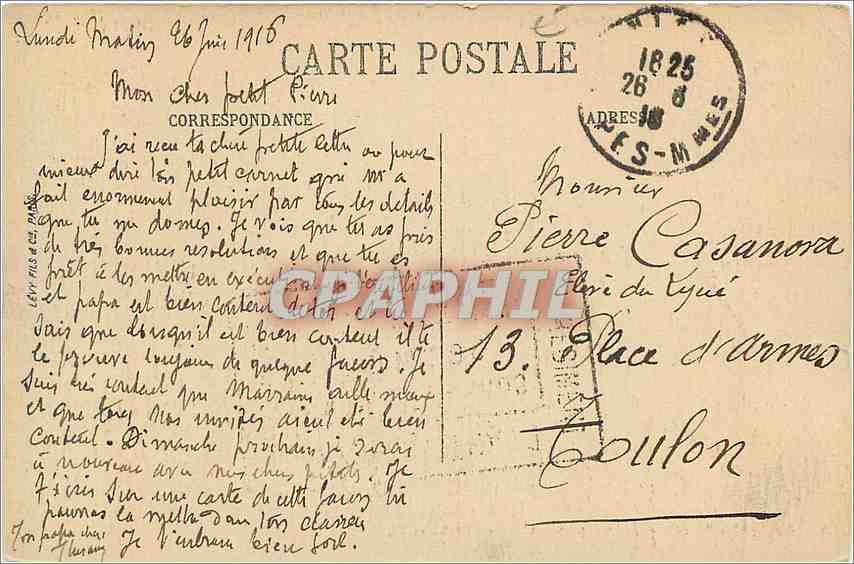 Lundi Matin 26 Juin 1916
CARTE POSTALE
Mon cher petit Pierre
CORRESPONDANCE
J'ai reçu ta chère petite lettre ou pour
mieux dire ton petit carnet qui m'a
fait enormement plaisir par tous les details
que tu me donnes. Je vois que tu as pris
de très bonnes resolutions et que tu es
prêt à les mettre en
et papa est bien content de toi et tu
sais que lorsqu'il est bien content il te
le prouve toujours de quelque facon. Je
suis très content que Marraine aille mieux
et que tous nos invités aient été bien
content. Dimanche prochain je serai
à nouveau avec mes chers petits. Je
t'écris sur une carte de cette facon tu
pourras la mettre dans ton classeur
Je t'embrasse bien fort.
Ton papa cheri
LEVY FILS & Cie, PARIS
ADRESSE
18 25
26 6
16
ES-Mmes
Monsieur
Pierre Casanova
Elève du Lycée
13. Place d'Armes
Toulon
CPAPHIL